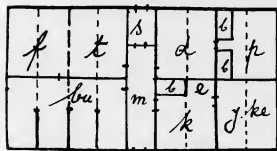 f t s d b p
b
bu m b e
k y. ke